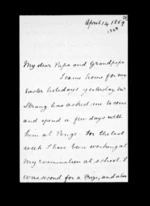 April 14, 1869
My dear Papa and Grandpapa
I came home for my
Easter holidays yesterday. Mr
Strang has asked me to come
and spend a few days with
him at Penge. For the last
week I have been working at
my examination at school. I
was second for a Prize, and also